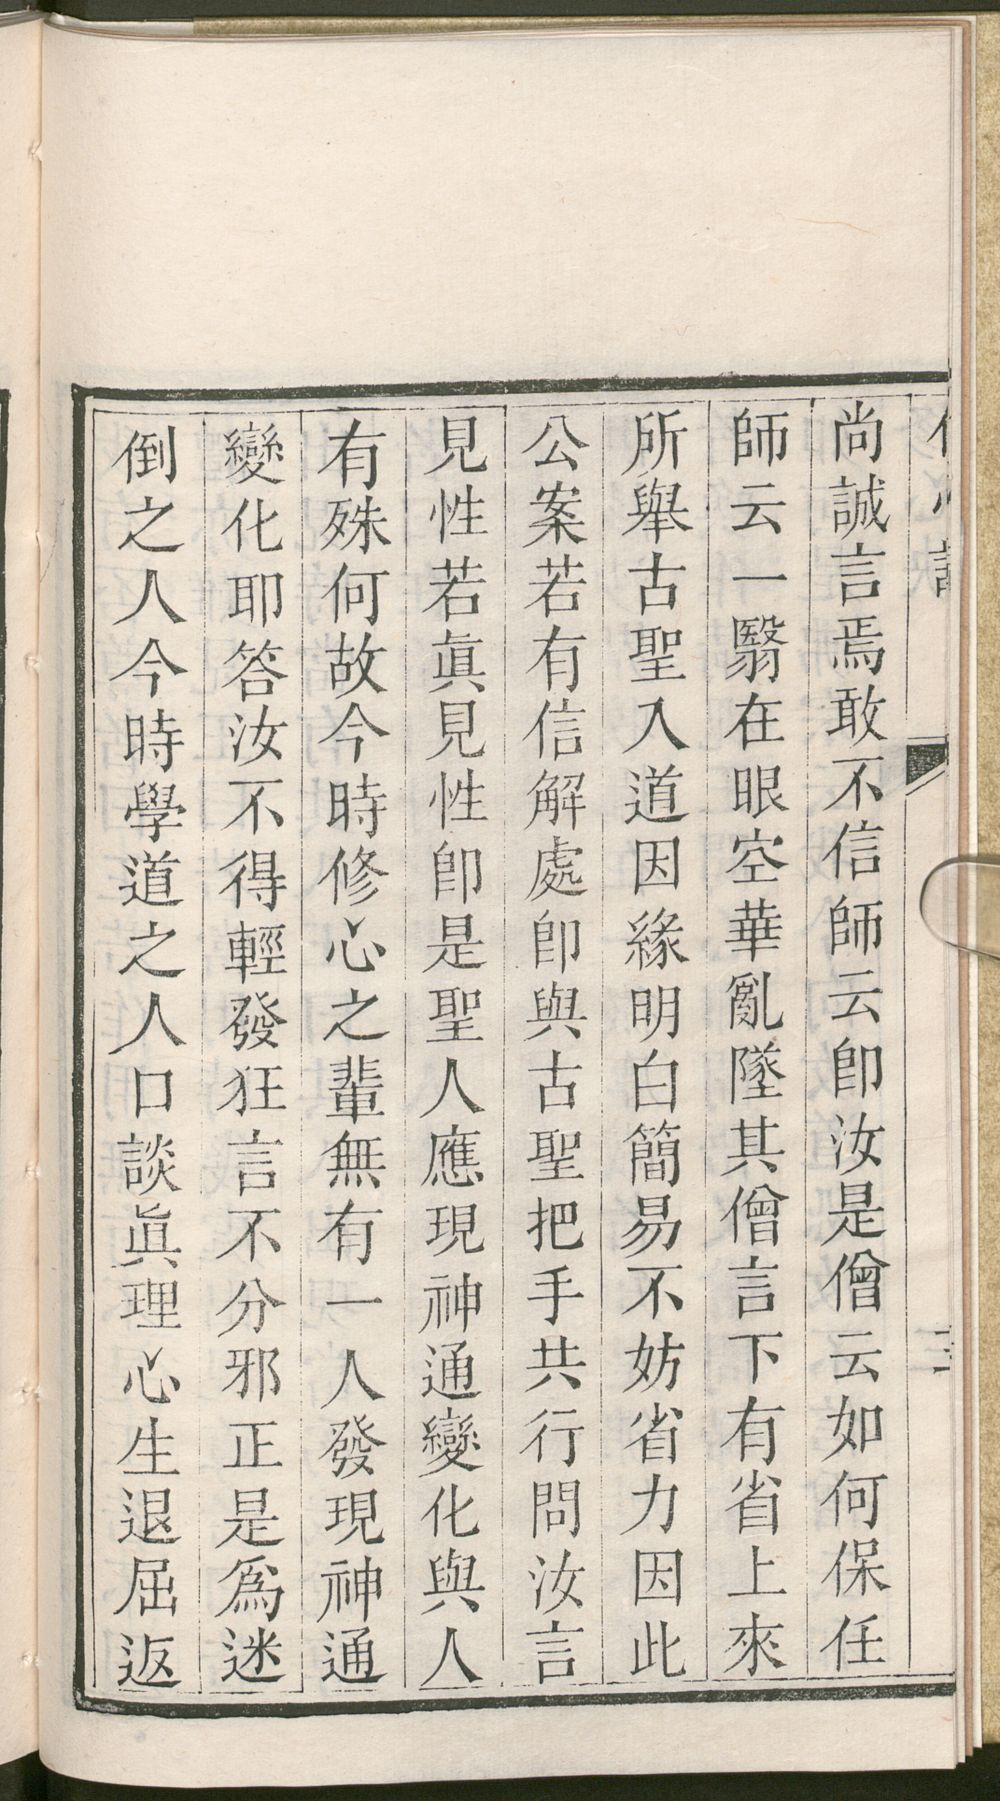 尚誠言焉敢不信師云卽汝是僧云如何保任
師云一翳在眼空華亂墜其僧言下有省上來
所舉古聖入道因緣明白簡易不妨省力因此
公案若有信解處卽與古聖把手共行問汝言
見性若眞見性卽是聖人應現神通變化與人
有殊何故今時修心之輩無有一人發現神通
變化耶答汝不得輕發狂言不分邪正是爲迷
倒之人今時學道之人口談眞理心生退屈返